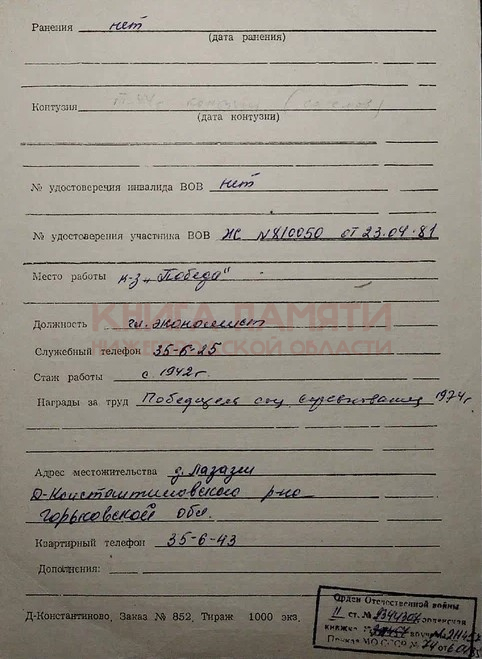 Ранения нет
(дата ранения)
Контузия
(дата контузии)
№ удостоверения инвалида ВОВ нет
№ удостоверения участника ВОВ ЖС №810050 от 23.04.81
Место работы к-з „Победа"
КНИГА ПАМЯТИ
Должность гл. экономист
НИЖЕГОРОДСКОЙ ОБЛАСТИ
Служебный телефон 35-6-25
Стаж работы с 1942 г
Награды за труд Победитель соц соревнования 1974г
Адрес местожительства
Д-Константиновского р-на
Горьковской обл.
Квартирный телефон 35-6-43
Дополнения:
Орден Отечественной войны
II ст. №
книжка
Приказ МО СССР № 74
Д-Константиново, Заказ № 852, Тираж 1000 экз.